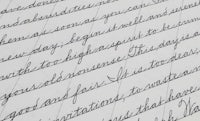 ve done
and absurdities no
hem as soon as you can. T
new day, begin it well and seren
with too high a spirit to be
your old nonsense. This day is a
good and fair. It is too dear,
invitations, to waste a m
rs that have